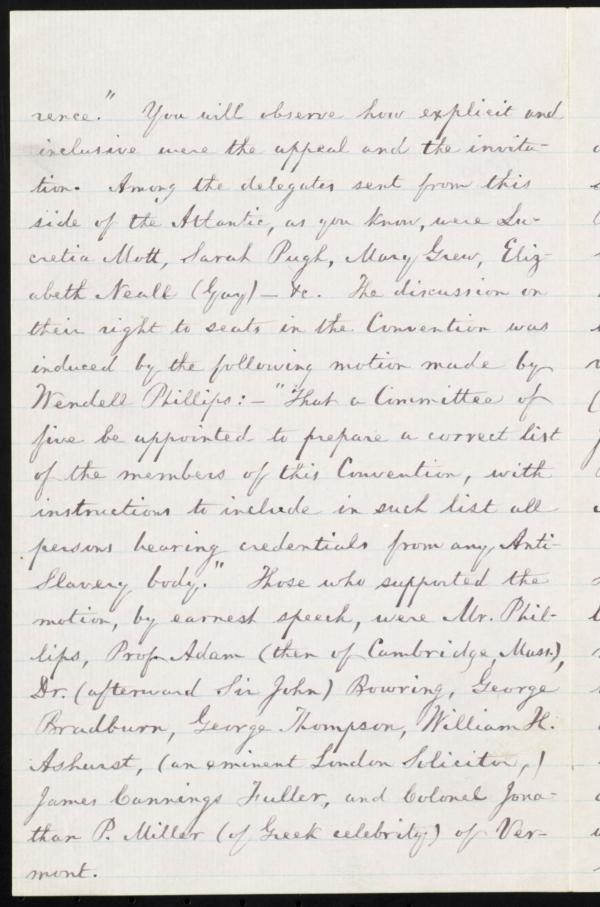 rence." You will observe how explicit and
inclusive were the appeal and the invita-
tion. Among the delegates sent from this
side of the Atlantic, as you know, were Lu-
cretia Mott, Sarah Pugh, Mary Grew, Eliz-
abeth Neall (Gay) — &c. The discussion on
their right to seats in the Convention was
induced by the following motion made by
Wendell Phillips: — "That a Committee of
five be appointed to prepare a correct list
of the members of this Convention, with
instructions to include in such list all
persons bearing credentials from any Anti-
Slavery body." Those who supported the
motion, by earnest speech, were Mr. Phil-
lips, Prof. Adam (then of Cambridge, Mass.),
Dr. (afterward Sir John) Bowring, George
Bradburn, George Thompson, William H.
Ashurst, (an eminent London Solicitor,)
James Cannings Fuller, and Colonel Jona-
than P. Miller (of Greek celebrity) of Ver-
mont.